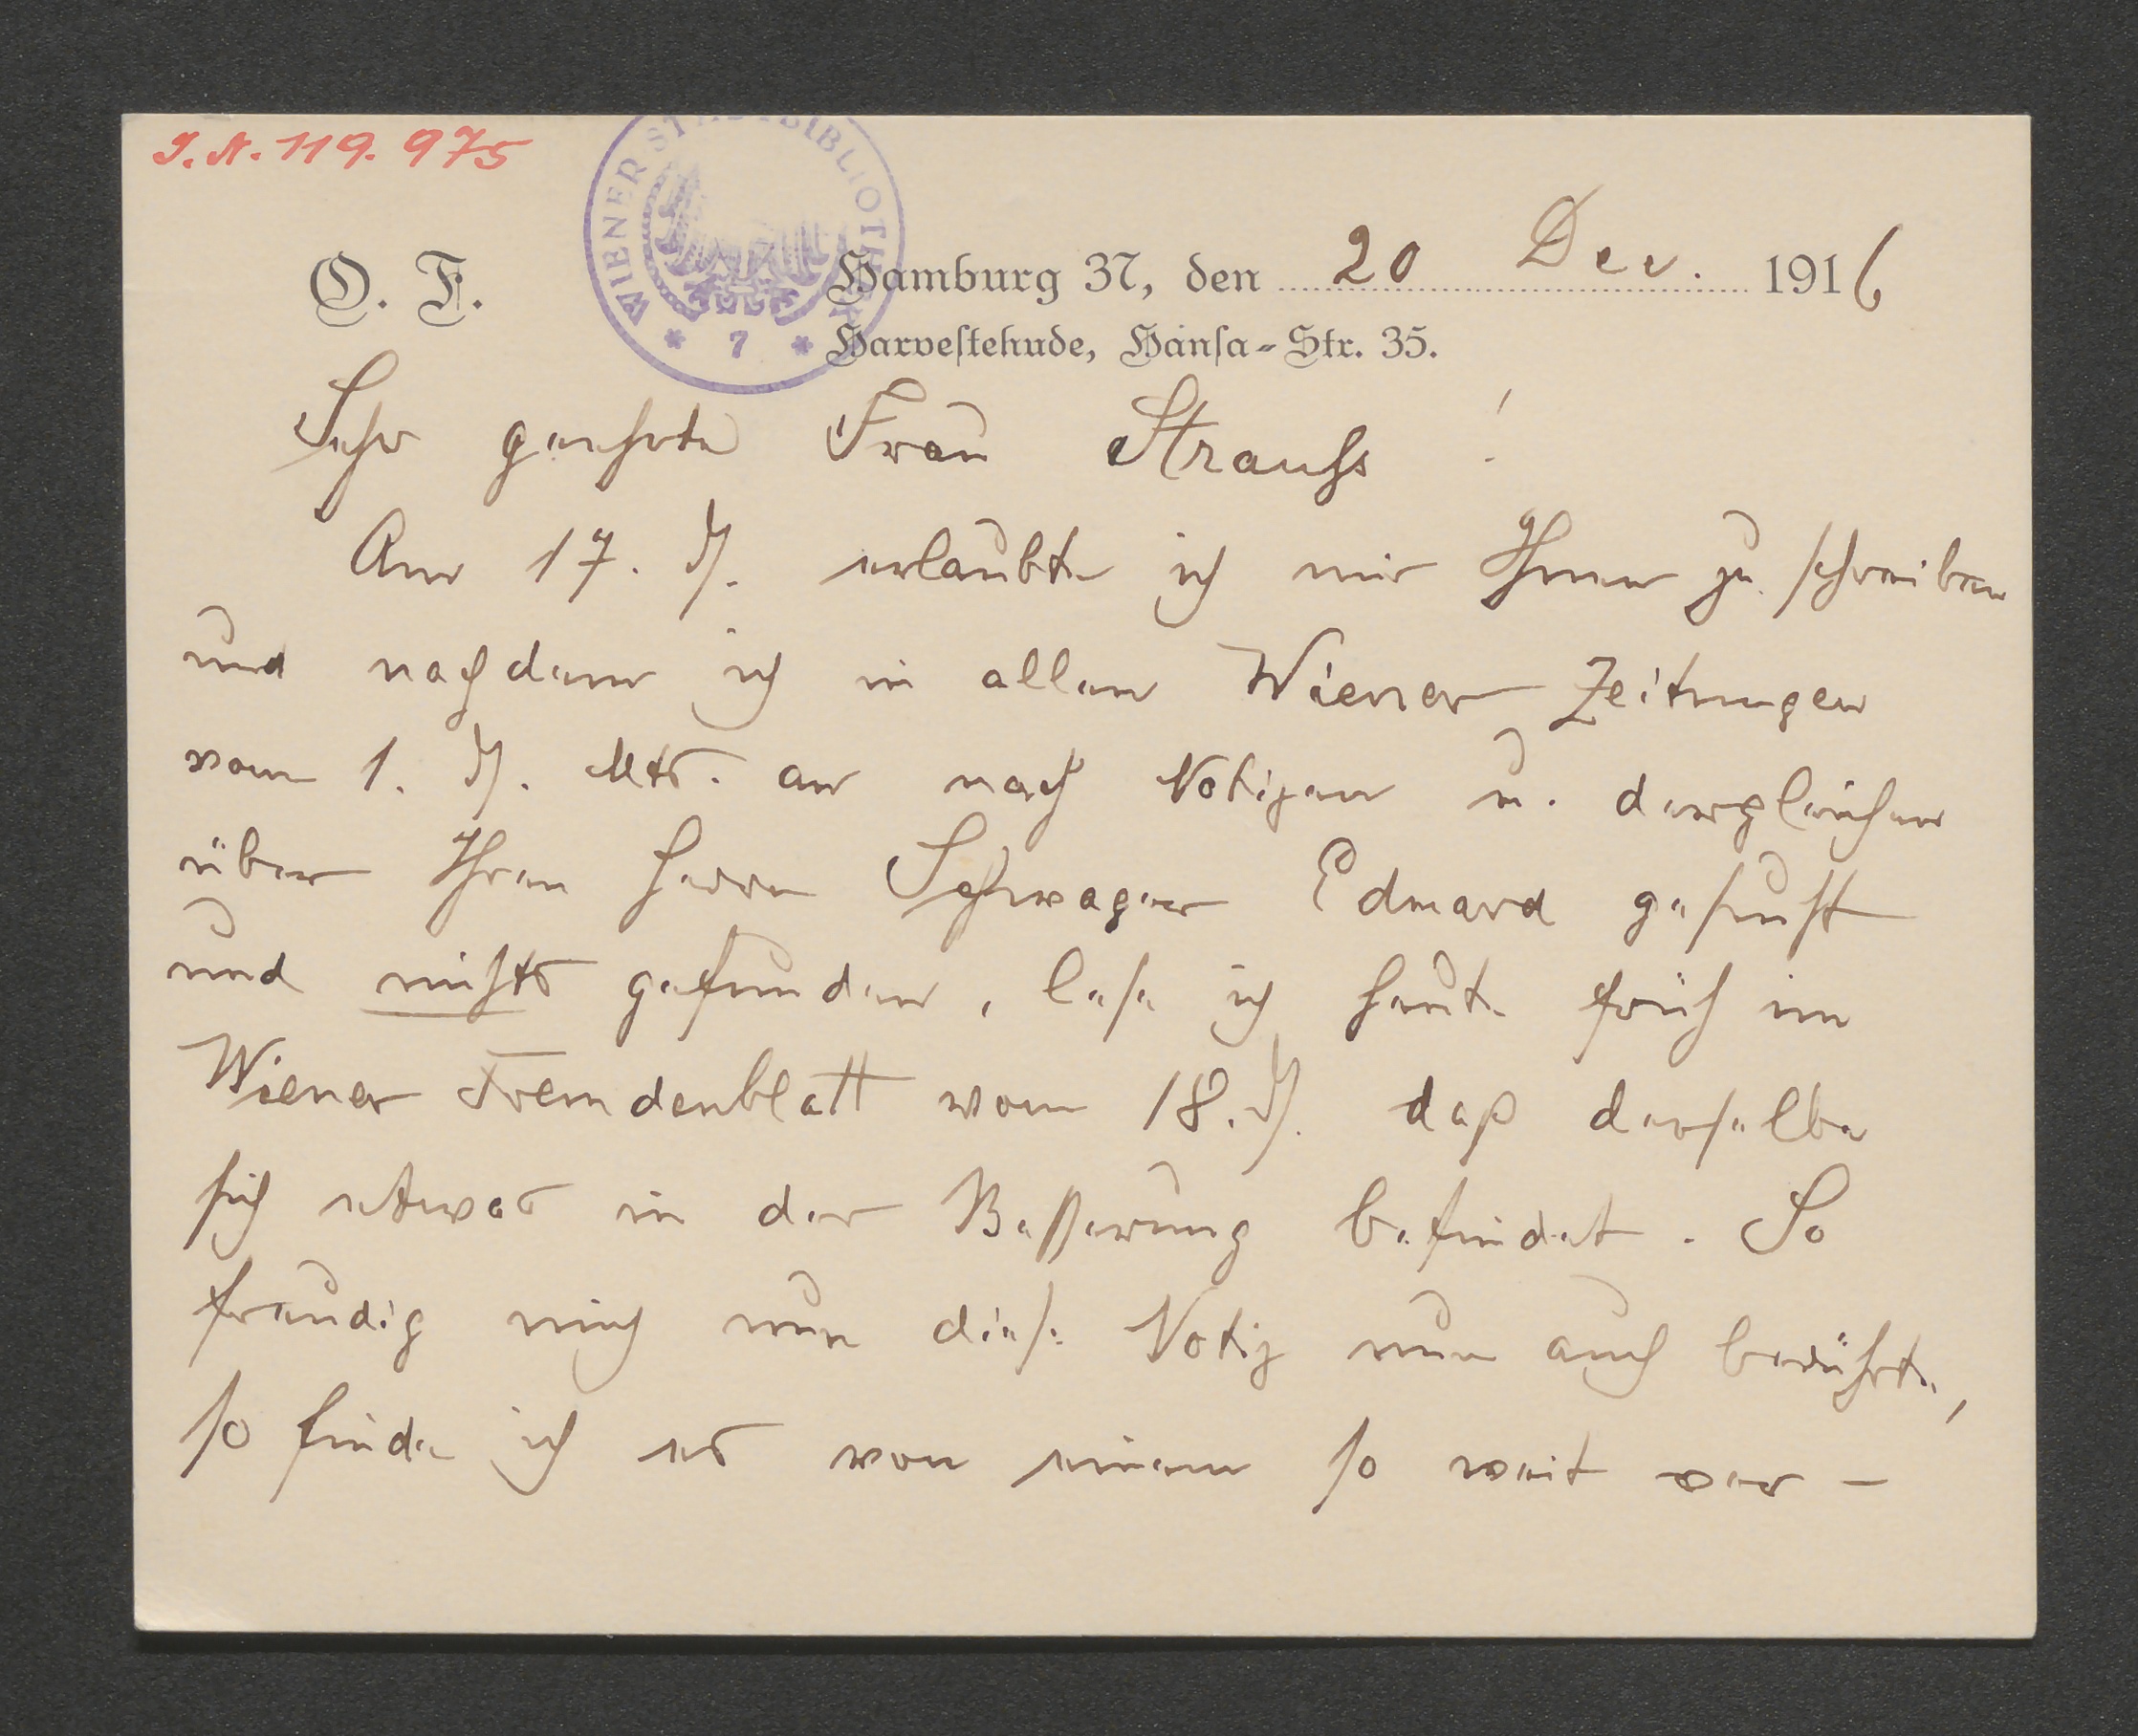 J. N. 119.975
WIENER STADTBIBLIOTHEK * 7 *
O. F. Hamburg 37, den 20 Dec. 1916
Harvestehude, Hansa-Str. 35.
Sehr geehrte Frau Strauss!
Am 17. d. erlaubte ich mir Ihnen zu schreiben
und nachdem ich in allen Wiener Zeitungen
vom 1. d. Mts. an nach Notizen u. dergleichen
über Ihren Herrn Schwager Eduard gesucht
und nichts gefunden, lese ich heute früh im
Wiener Fremdenblatt vom 18. d. daß derselbe
sich etwas in der Besserung befindet. So
freudig mich nun diese Notiz nun auch berührte,
so finde ich es von einem so weit ver-